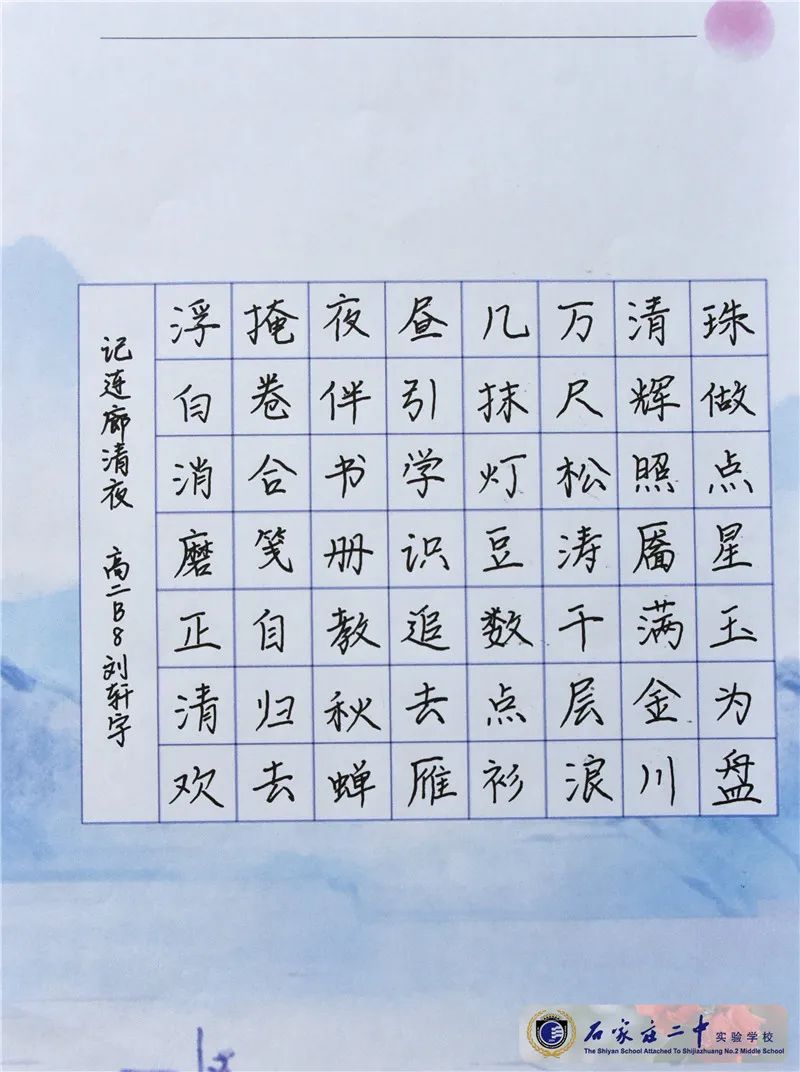 珠做点星玉为盘
清辉照靥满金川
万尺松涛千层浪
几抹灯豆数点衫
昼引学识追去雁
夜伴书册教秋蝉
掩卷合笺自归去
浮白消磨正清欢
记连廊清夜 高二B8刘轩宇
石家庄二中 实验学校
The Shiyan School Attached To Shijiazhuang No.2 Middle School